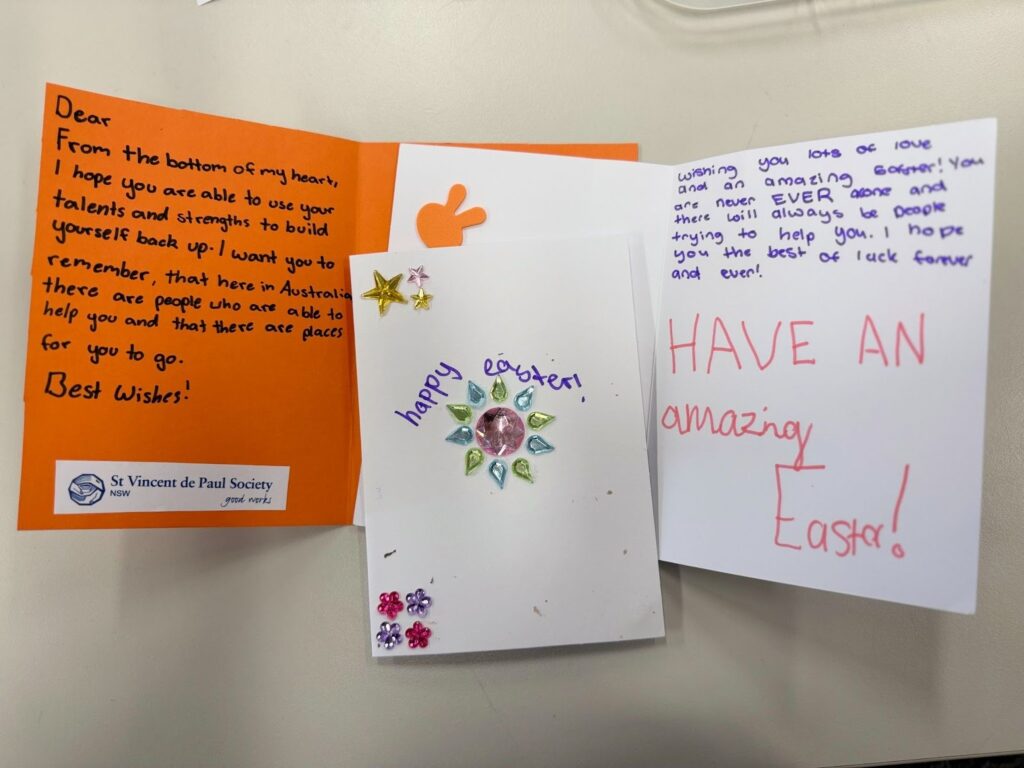 Dear
From the bottom of my heart,
I hope you are able to use your
talents and strengths to build
yourself back up. I want you to
remember, that here in Australia
there are people who are able to
help you and that there are places
for you to go.
Best Wishes!
St Vincent de Paul Society
NSW
good works
happy easter!
wishing you lots of love
and an amazing easter! You
are never EVER alone and
there will always be people
trying to help you. I hope
you the best of luck forever
and ever!
HAVE AN
amazing
Easter!